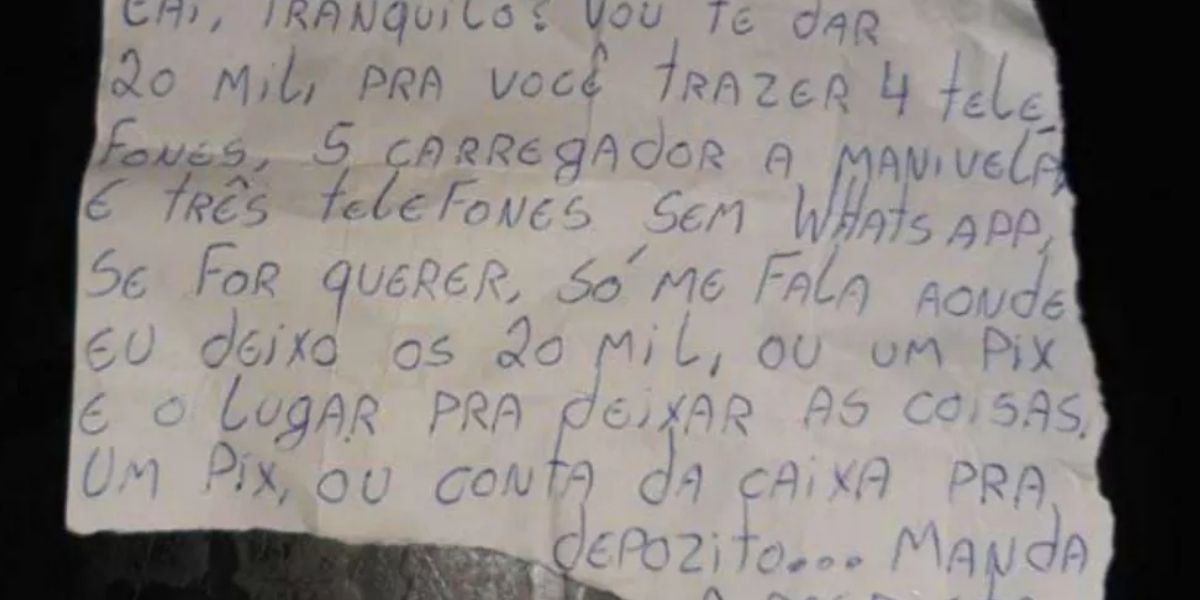 EAI, TRANQUILO? VOU TE DAR
20 MIL, PRA VOCÊ TRAZER 4 TELE-
FONES, 5 CARREGADOR A MANIVELA,
E TRÊS TELEFONES SEM WHATSAPP,
SE FOR QUERER, SÓ ME FALA AONDE
EU DEIXO OS 20 MIL, OU UM PIX
E O LUGAR PRA DEIXAR AS COISAS.
UM PIX, OU CONTA DA CAIXA PRA
DEPOZITO... MANDA